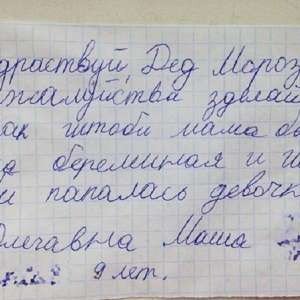 драствуй, Дед Мороз
жалуйства зделай
ак штоби мама
а береминая и
и папалась девочк
Олегавна Маша
9 лет.